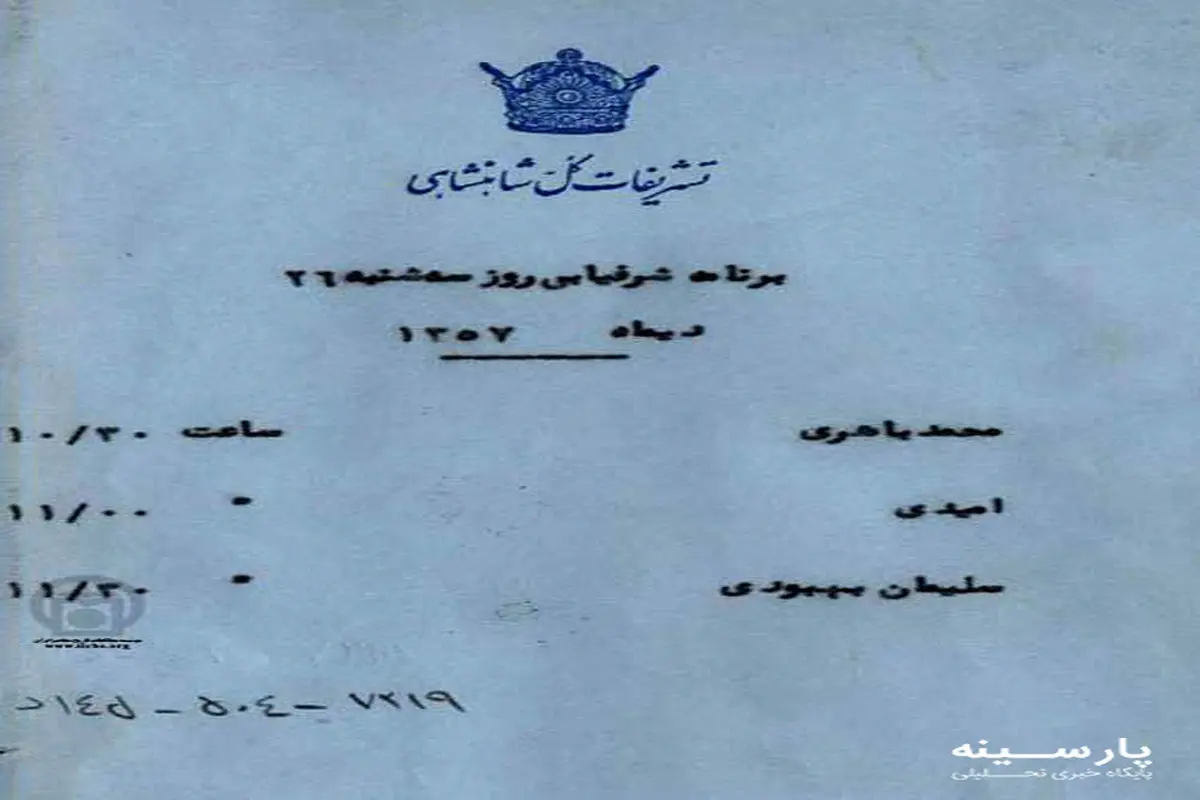 تشریفات کل شاهنشاهی
برنامه شرفیابی روز سه‌شنبه ۲۶
دیماه ۱۳۵۷
محمد باهری ساعت ۱۰/۳۰
امیدی " ۱۱/۰۰
سلیمان بهبودی " ۱۱/۳۰
www.iichs.org
۷۲۱۹ - ۵۰۴ - ۱۴۵د
پارسینه
پایگاه خبری تحلیلی